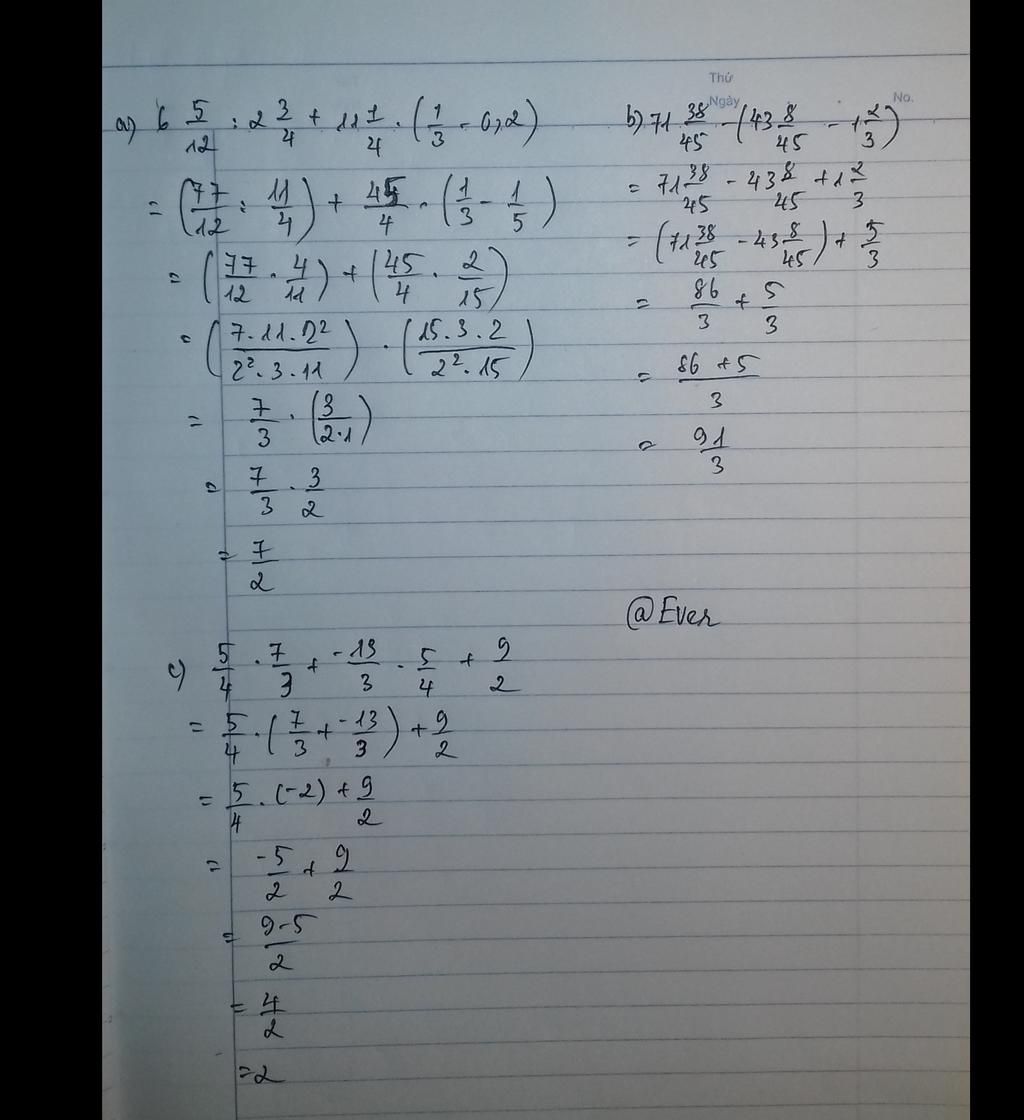 Thứ
Ngày
No.
a) 6 5/12 : 2 3/4 + 11 1/4 . (1/3 - 0,2)
= (77/12 : 11/4) + 45/4 . (1/3 - 1/5)
= (77/12 . 4/11) + (45/4 . 2/15)
= (7.11.2²/2².3.11) . (15.3.2/2².15)
= 7/3 . (3/2.1)
= 7/3 . 3/2
= 7/2
b) 71 38/45 - (43 8/45 - 1 2/3)
= 71 38/45 - 43 8/45 + 1 2/3
= (71 38/45 - 43 8/45) + 5/3
= 86/3 + 5/3
= 86 + 5/3
= 91/3
@Ever
c) 5/4 . 7/3 + -13/3 . 5/4 + 9/2
= 5/4 . (7/3 + -13/3) + 9/2
= 5/4 . (-2) + 9/2
= -5/2 + 9/2
= 9-5/2
= 4/2
= 2